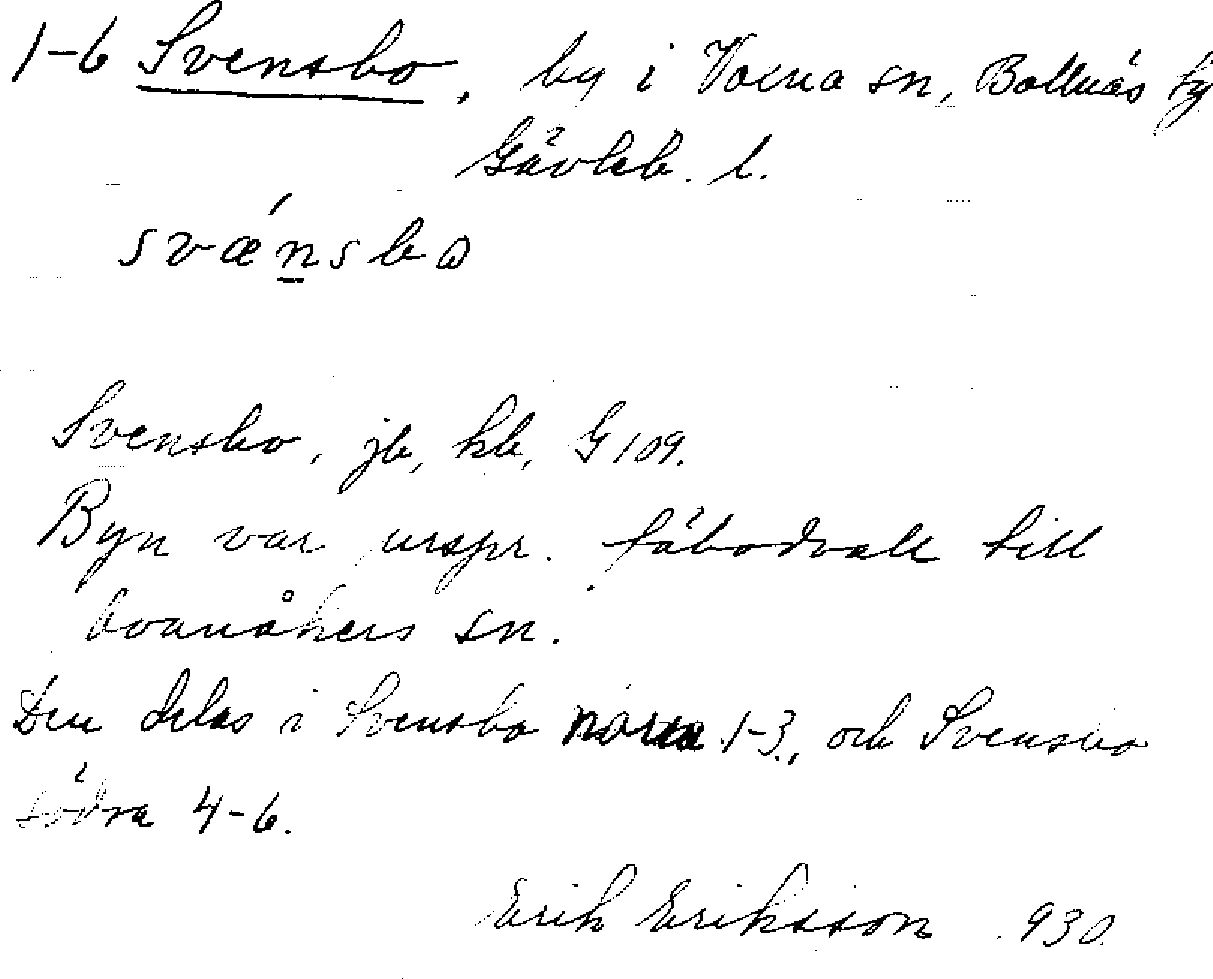 1-6 Svensbo, by i Voxna sn, Bollnäs fg
Gävleb. l.
svǽn̲sbo
Svensbo, jb, kb, G 109.
Byn var urspr. fäbodvall till
Ovanåkers sn.
Den delas i Svensbo norra 1-3, och Svensbo
södra 4-6.
Erik Eriksson 930.